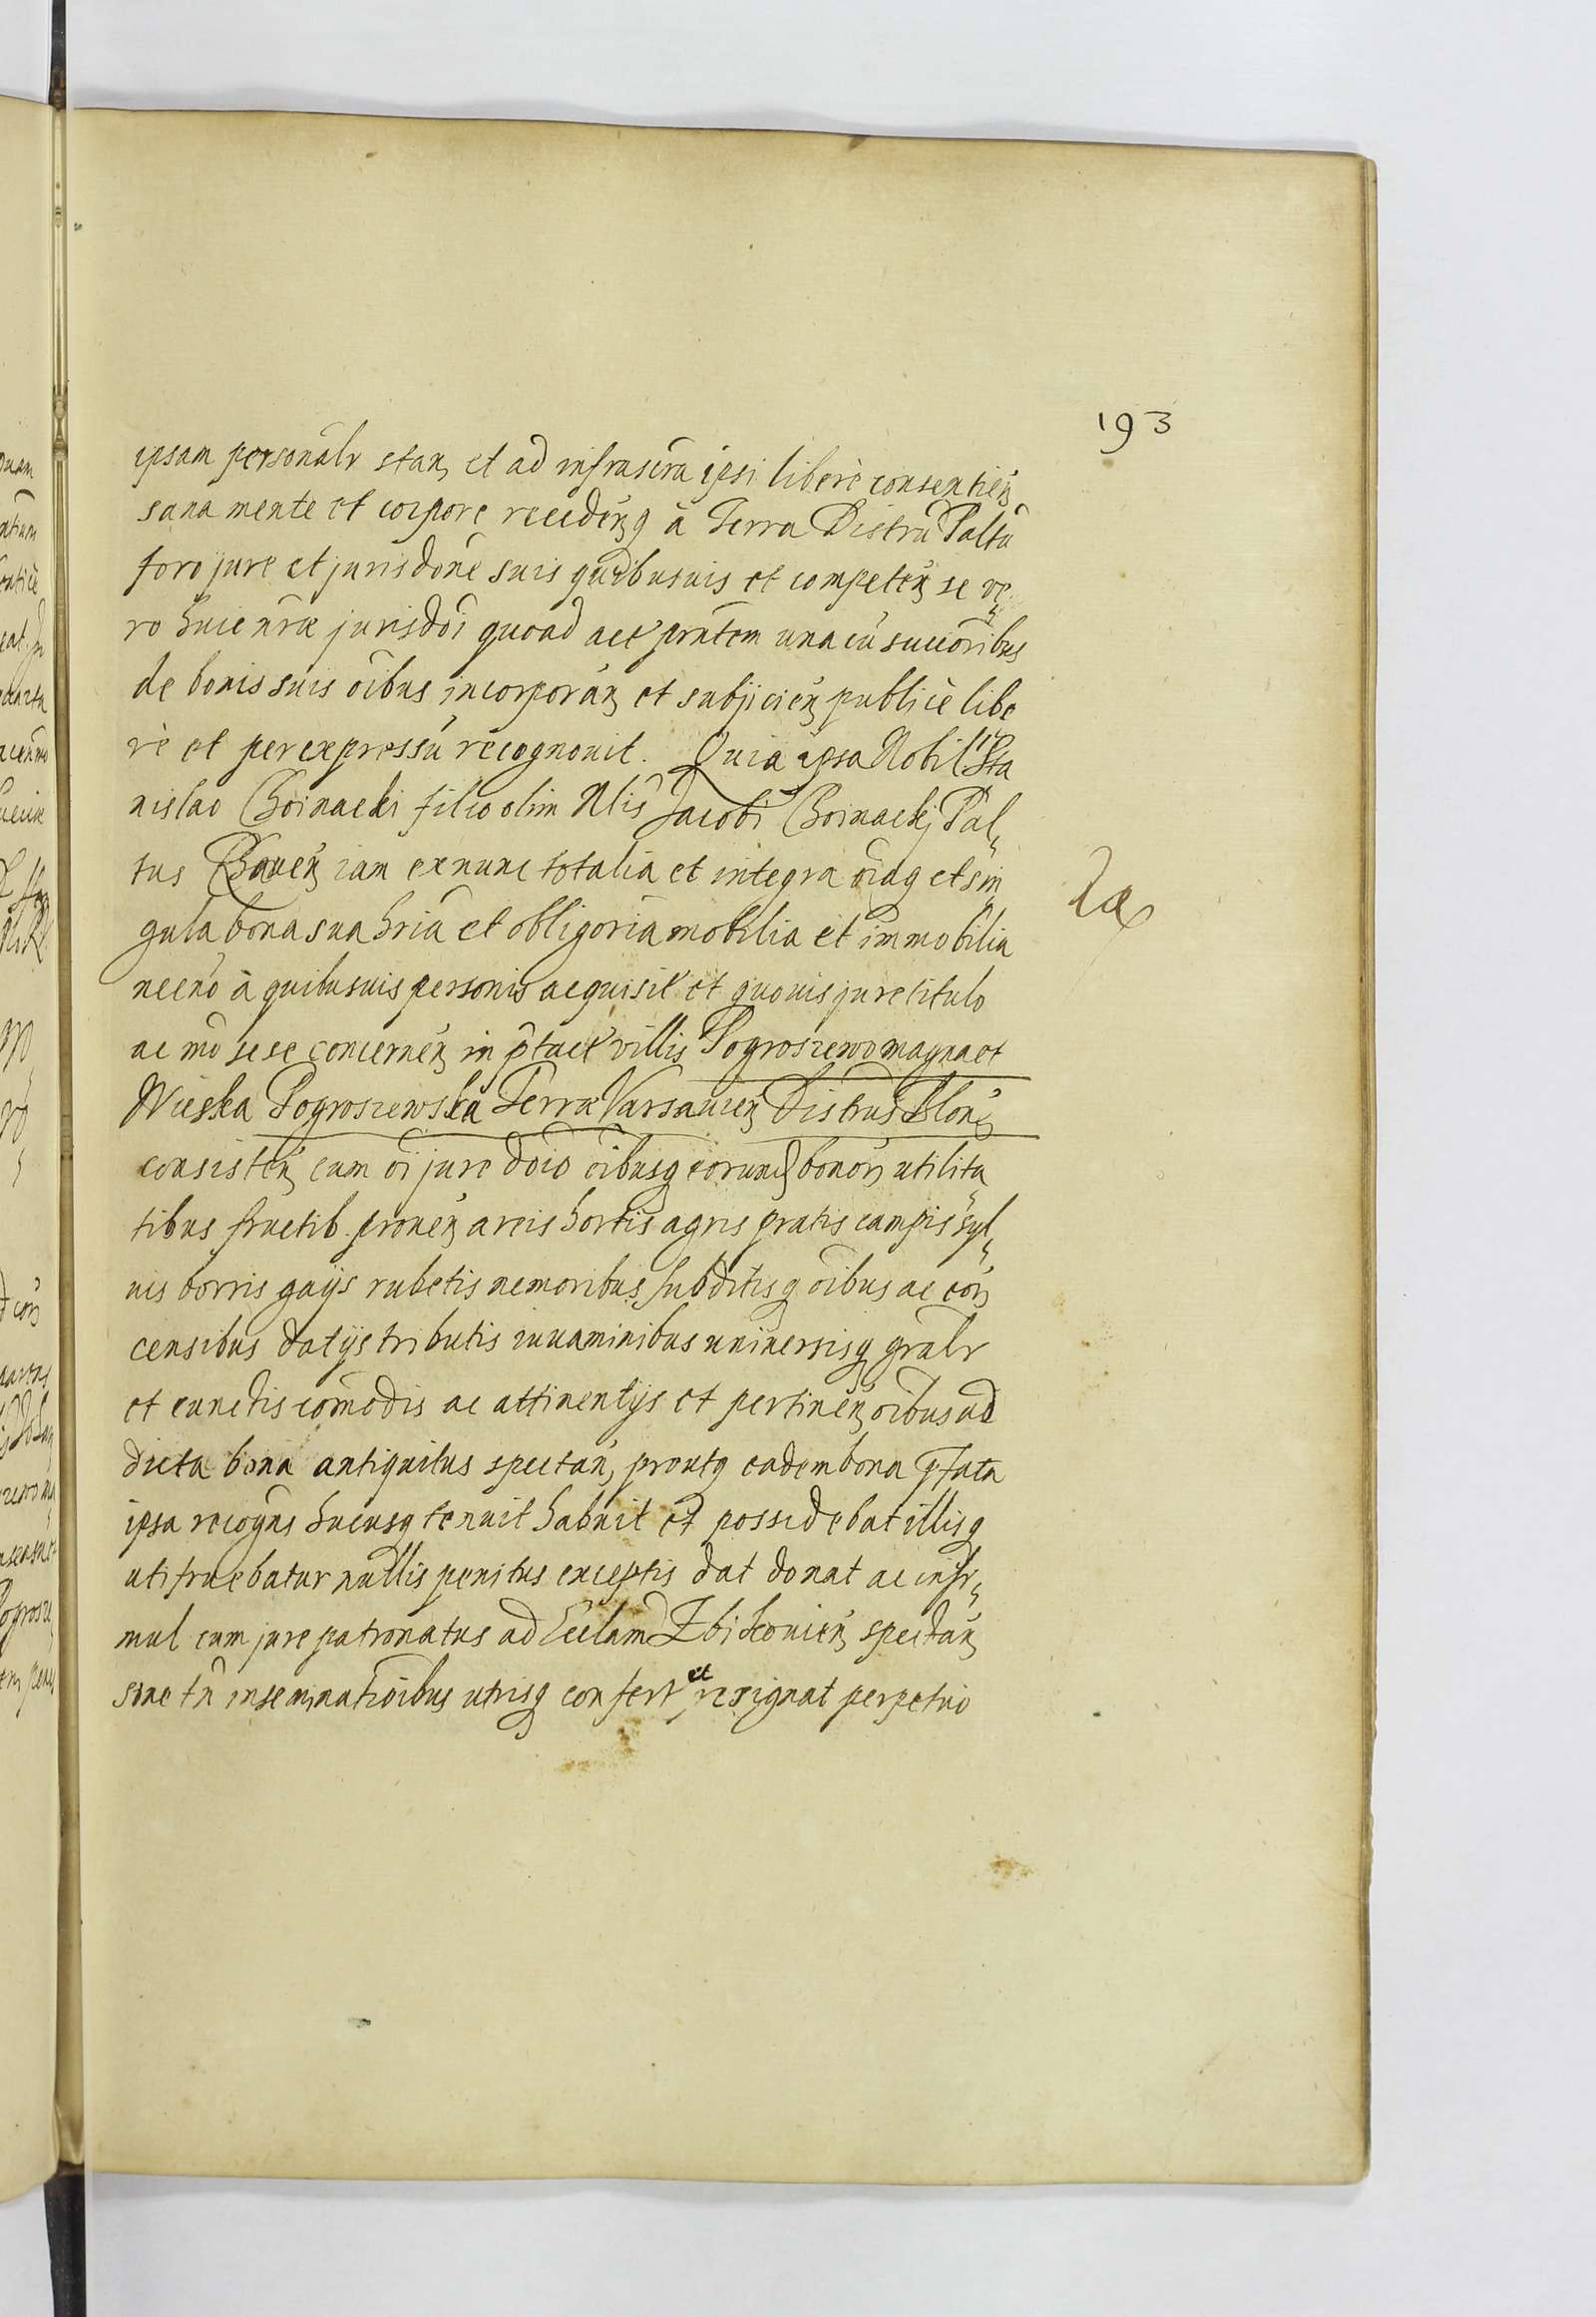 193
ipsam personalr stan, et ad infrascra ipsi liberè consentień
sana mente et corpore recedenq à Terra Distru Paltu
foro jure et jurisdone suis quibusuis et competeń se ve
ro huic nrae jurisdoi quoad act prntem una cu succoribus
de bonis suis oibus incorporań et subjicień publicè libe
rè et per expressu recognouit. Quia ipsa Nobil Sta
nislao Choinacki filio olim Nlis Jacobi Choinackj Pal
tus iam ex nunc totalia et integra oiaq et sin
gula bona sua hria et obligoria mobilia et immobilia
necno à quibusuis personis acquisit et quouis jure titulo
ac mo sese concerneń in ptact villis Pogroszewo magna et
Wieska Pogroszewska Terrae Varsauień Distrus Blonę
consisteń cum oi jure doio oibusq eorund bonor utilita
tibus fructib. proueń areis hortis agris pratis campis syl
uis borris gaijs rubetis nemoribus subditisq oibus ac eor
censibus datijs tributis iuuaminibus uniuersisq gralr
et cunctis comodis ac attinentijs et pertineń oibus ad
dicta bona antiquitus spectań, proutq eadem bona pfata
ipsa recogns hucusq tenuit habuit et possidebat illisq
utifruebatur nullis penitus exceptis dat donat ac insi
mul cum jure patronatus ad Ecclam Zbikouień spectań
sine tn inseminatioibus utrisq confert et resignat perpetuo